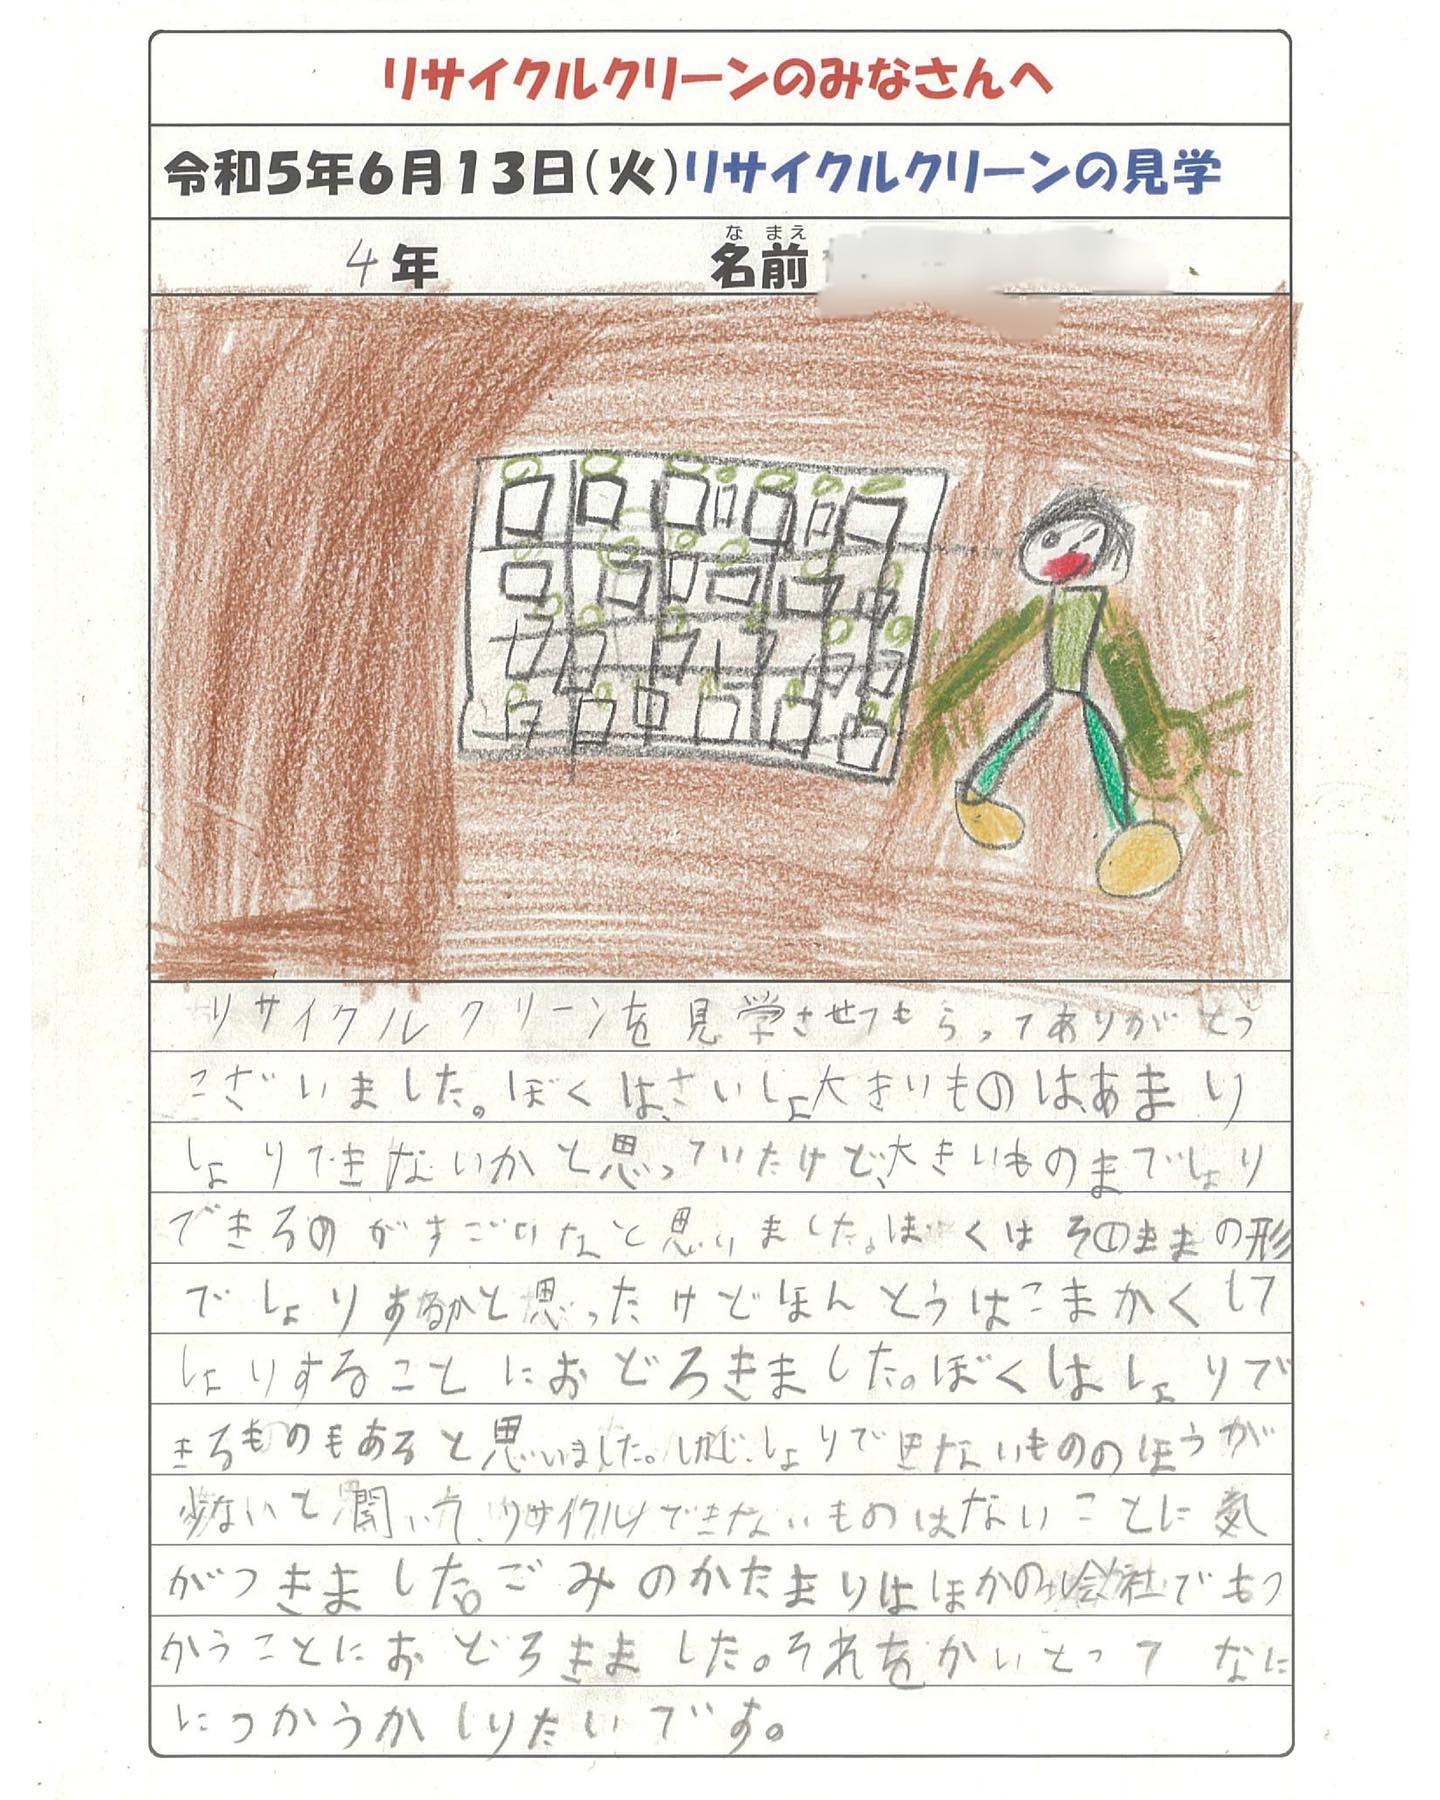 リサイクルクリーンのみなさんへ
令和5年6月13日(火)リサイクルクリーンの見学
4年 名前
な まえ
リサイクルクリーンを見学させてもらってありがとう
ございました。ぼくは、さいしょ大きいものは、あまり
しょりできないかと思っていたけど、大きいものまでしょり
できるのがすごいなと思いました。ぼくはそのままの形
でしょりするかと思ったけどほんとうはこまかくして
しょりすることにおどろきました。ぼくはしょりで
きるものもあると思いました。しかし、しょりできないもののほうが
少ないと聞いて、リサイクルできないものはないことに気
がつきました。ごみのかたまりはほかの会社でもつ
かうことにおどろきました。それをかいとって なに
につかうかしりたいです。